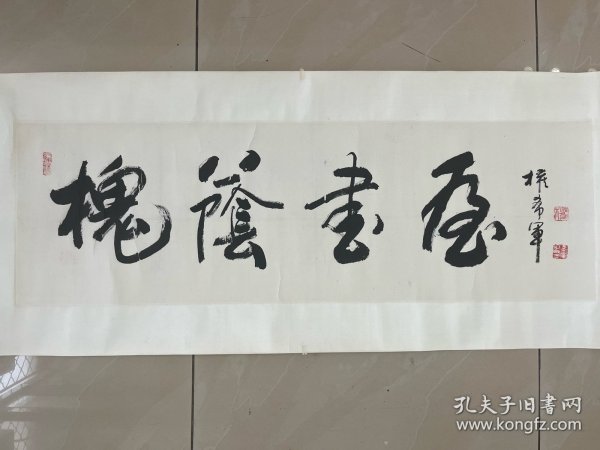 槐蔭书屋
権希軍
孔夫子旧书网
www.kongfz.com